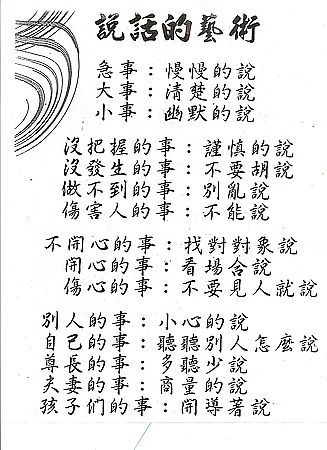 說話的藝術
急事：慢慢的說
大事：清楚的說
小事：幽默的說
沒把握的事：謹慎的說
沒發生的事：不要胡說
做不到的事：別亂說
傷害人的事：不能說
不開心的事：找對對象說
開心的事：看場合說
傷心的事：不要見人就說
別人的事：小心的說
自己的事：聽聽別人怎麼說
尊長的事：多聽少說
夫妻的事：商量的說
孩子們的事：開導著說